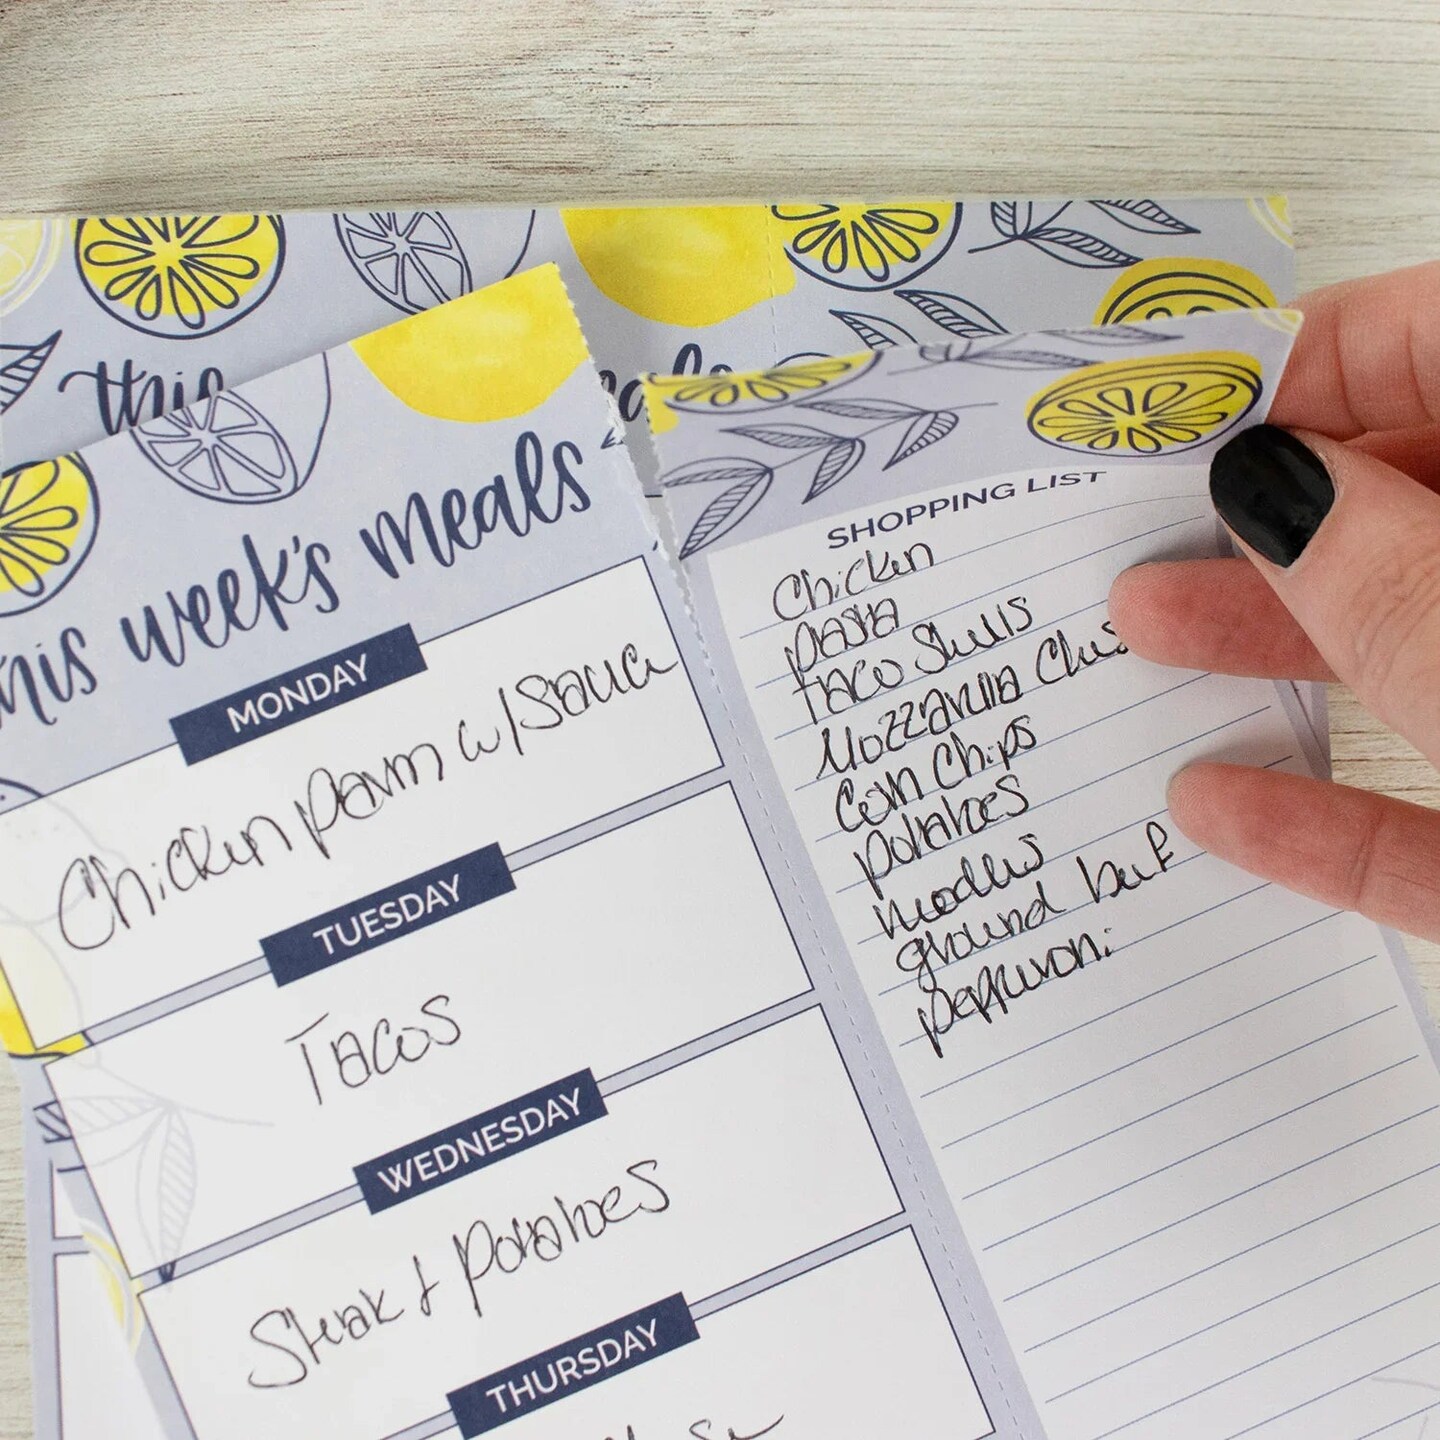 this
this week's meals
MONDAY
Chicken parm w/sauce
TUESDAY
Tacos
WEDNESDAY
Steak & Potatoes
THURSDAY
SHOPPING LIST
Chicken
pasta
Taco Shells
Mozzarella Chees
Corn Chips
potatoes
noodles
ground beef
pepperoni